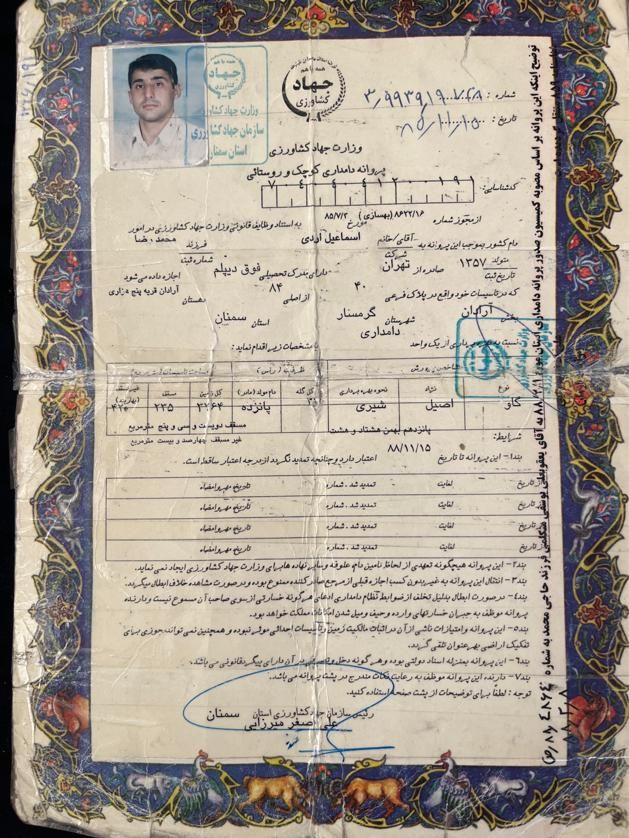 همه با هم
جهاد
کشاورزی
وزارت جهاد کشاورزی
سازمان جهاد کشاورزی
استان سمنان
همه با هم
جهاد
کشاورزی
شماره :
تاریخ :
وزارت جهاد کشاورزی
پروانه دامداری کوچک و روستائی
کد شناسایی:
از مجوز شماره ۸۶۲۲/۱۶ (بهسازی) مورخ ۸۵/۷/۲ به استناد وظایف قانونی وزارت جهاد کشاورزی در امور
دام کشور بموجب این پروانه به آقای/خانم اسماعیل اردی فرزند محمد رضا
شرکت شماره ثبت
متولد ۱۳۵۷ صادره از تهران دارای مدرک تحصیلی فوق دیپلم اجازه داده می‌شود
تاریخ ثبت
که در تاسیسات خود واقع در پلاک فرعی ۴۰ از اصلی ۸۴ دهستان آرادان قریه پنج هزاری
بخش آرادان شهرستان گرمسار استان سمنان
نسبت به بهره برداری از یک واحد دامداری با مشخصات زیر اقدام نماید:
نوع نژاد نحوه بهره برداری کل گله دام مولد (مادر) کل زمین مسقف غیر مسقف
گاو اصیل شیری پانزده ۲۳۵ ۴۲۰
مسقف دویست و سی و پنج مترمربع
غیر مسقف چهارصد و بیست مترمربع
پانزدهم بهمن هشتاد و هشت
شرایط:
بند۱- این پروانه تا تاریخ ۸۸/۱۱/۱۵ اعتبار دارد و چنانچه تمدید نگردد از درجه اعتبار ساقط است.
تاریخ لغایت تمدید شد. شماره تاریخ مهر و امضاء
تاریخ لغایت تمدید شد. شماره تاریخ مهر و امضاء
تاریخ لغایت تمدید شد. شماره تاریخ مهر و امضاء
تاریخ لغایت تمدید شد. شماره تاریخ مهر و امضاء
بند۲- این پروانه هیچگونه تعهدی از لحاظ تامین دام، علوفه و سایر نهاده ها برای وزارت جهاد کشاورزی ایجاد نمی نماید.
بند۳- انتقال این پروانه به غیر بدون کسب اجازه قبلی از مرجع صادر کننده ممنوع بوده و در صورت مشاهده خلاف ابطال میگردد.
بند۴- در صورت ابطال بدلیل تخلف از ضوابط نظام دامداری ادعای هرگونه خسارتی از سوی صاحب آن مسموع نیست و دارنده
پروانه موظف به جبران خسارتهای وارده و حیف و میل شدن امکانات مملکت خواهد بود.
بند۵- این پروانه و امتیازات ناشی از آن در اثبات مالکیت زمین و تاسیسات احداثی موثر نبوده و همچنین نمی تواند مجوزی برای
تفکیک اراضی بهر عنوان تلقی گردد.
بند۶- این پروانه بمنزله اسناد دولتی بوده و هر گونه دخل و تصرف در آن دارای پیگرد قانونی می باشد.
بند۷- دارنده این پروانه موظف به رعایت نکات مندرج در پشت پروانه می باشد.
توجه : لطفاً برای توضیحات از پشت صفحه استفاده کنید.
رئیس سازمان جهاد کشاورزی استان سمنان
علی اصغر میرزایی
توضیح اینکه این پروانه بر اساس مصوبه کمیسیون صدور پروانه دامداری استان مورخ ۸۸/۲/۹ به آقای یعقوبعلی یوسفی فرزند حاجی محمد به شماره